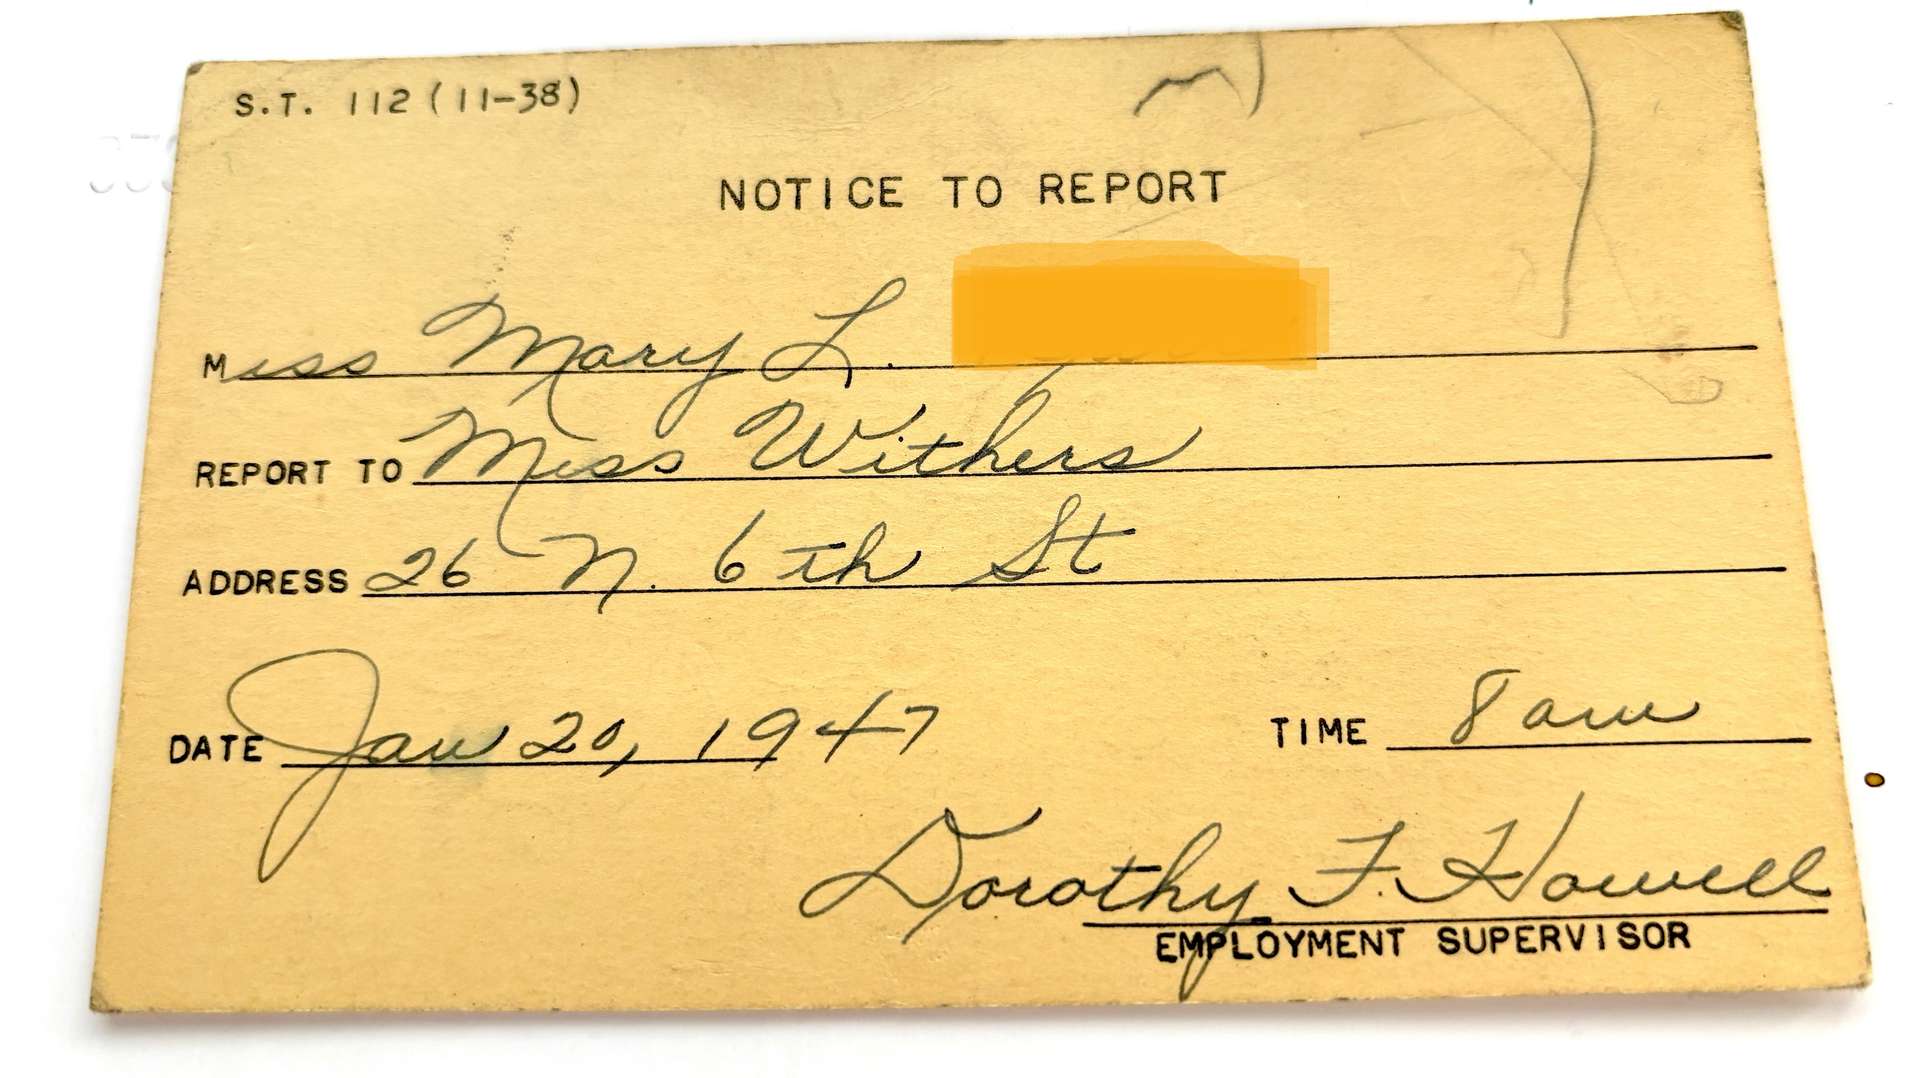 S.T. 112 (11-38)
NOTICE TO REPORT
Miss Mary L.
REPORT TO Miss Withers
ADDRESS 26 N. 6th St
DATE Jan 20, 1947 TIME 8 am
Dorothy F. Howell
EMPLOYMENT SUPERVISOR